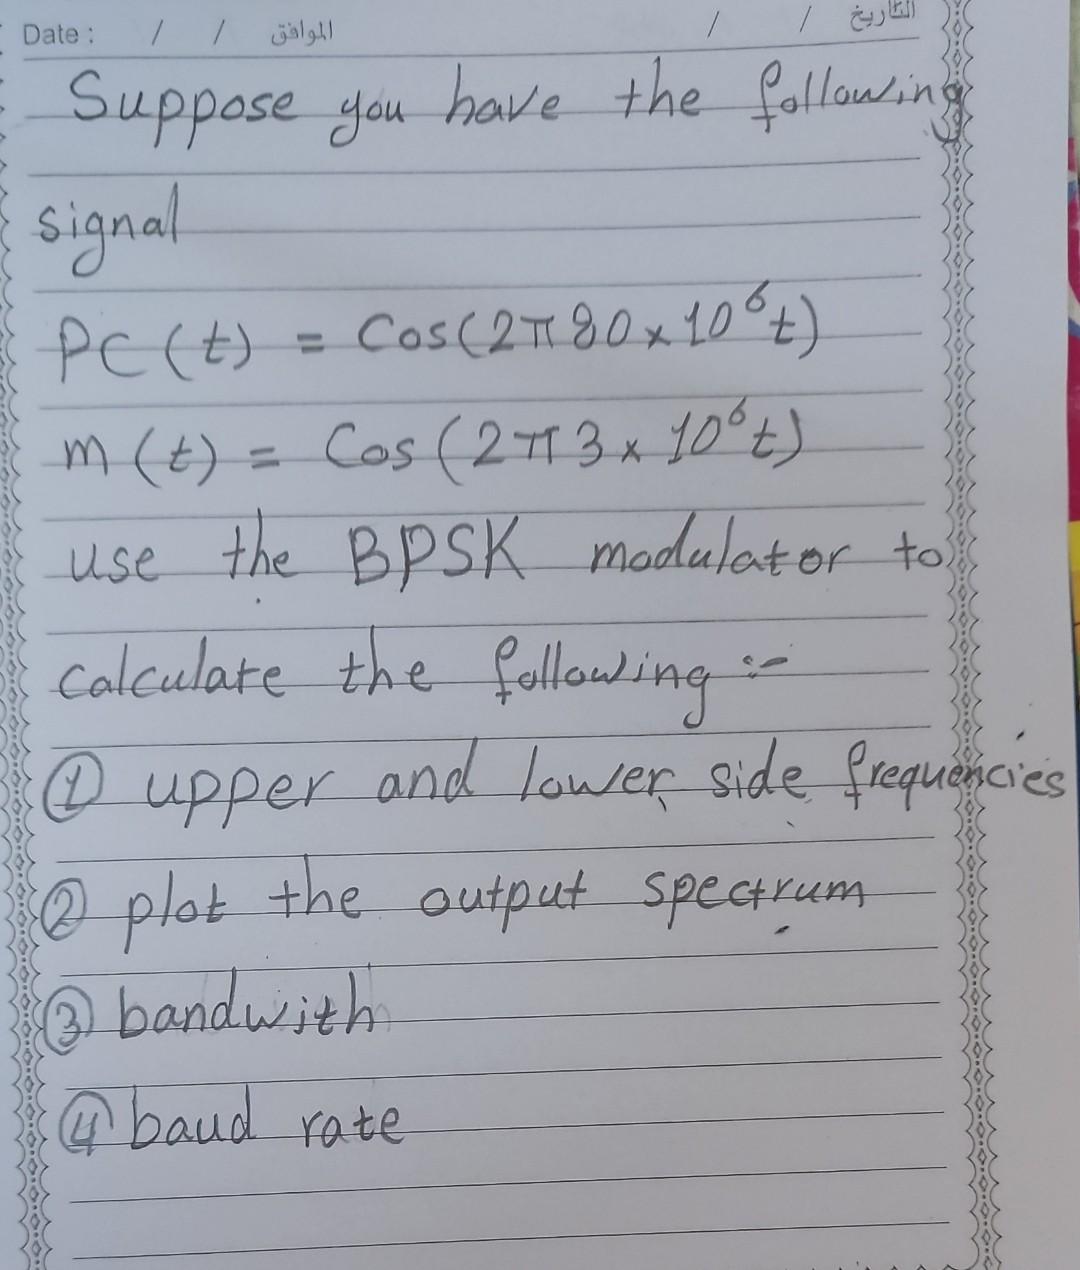 Date : / / الموافق / / التاريخ
Suppose you have the following
signal
PC(t) = Cos(2π80x10⁶t)
m(t) = Cos(2π3x10⁶t)
use the BPSK modulator to
calculate the following :-
① upper and lower side frequencies
② plot the output spectrum
③ bandwith
④ baud rate